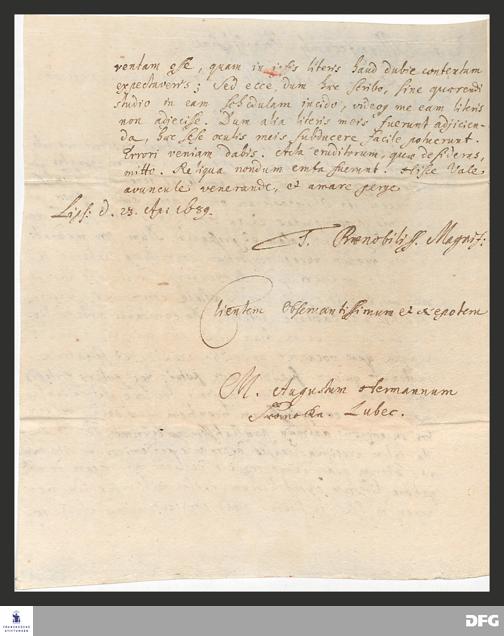 ventam esse, quam in istis literis haud dubie contentam
expectaveris; Sed ecce, dum haec scribo, sine quaerendi
studio in eam schedulam incido, videoq me eam literis
non adjecisse. Dum alia literis meis fuerunt adjicien-
da, haec sese oculis meis subducere facile potuerunt.
Errori veniam dabis. Acta eruditorum, quae desideras,
mitto. Reliqua nondum emta fuerunt. Vale
avuncule venerande, et amare perge
Lips: d. 23. 1689.
T. Praenobiliss. Magnif:
Clientem Observantissimum et Nepotem
M. Augustum Hermannum
Lubec.
FRANCKESCHE
STIFTUNGEN
DFG